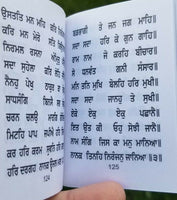 ਉਸਤਤਿ ਮਨ ਮਹਿ ਕਰਿ
ਕਰਿ ਮਨ ਮੇਰੇ ਸਤਿ
ਨਿਰਮਲ ਰਸਨਾ
ਸਦਾ ਸੁਹੇਲਾ
ਨੈਨਹੁ ਪੇਖੁ
ਸਾਧਸੰਗਿ
ਚਰਨ ਚਲਉ
ਮਿਟਹਿ ਪਾਪ
ਕਰ ਹਰਿ ਕਰਮ
ਹਰਿ ਦਰਗਹ
124
ਬਡਭਾਗੀ ਤੇ ਜਨ ਜਗ ਮਾਹਿ॥
ਸਦਾ ਸਦਾ ਹਰਿ ਕੇ ਗੁਨ ਗਾਹਿ॥
ਰਾਮ ਨਾਮ ਜੋ ਕਰਹਿ ਬੀਚਾਰ॥
ਸੇ ਧਨਵੰਤ ਗਨੀ ਸੰਸਾਰ॥
ਮਨਿ ਤਨਿ ਮੁਖਿ ਬੋਲਹਿ ਹਰਿ ਮੁਖੀ॥
ਸਦਾ ਸਦਾ ਜਾਨਹੁ ਤੇ ਸੁਖੀ॥
ਏਕੋ ਏਕੁ ਏਕੁ ਪਛਾਨੈ॥
ਇਤ ਉਤ ਕੀ ਓਹੁ ਸੋਝੀ ਜਾਨੈ॥
ਨਾਮ ਸੰਗਿ ਜਿਸ ਕਾ ਮਨੁ ਮਾਨਿਆ॥
ਨਾਨਕ ਤਿਨਹਿ ਨਿਰੰਜਨੁ ਜਾਨਿਆ॥੩॥
125